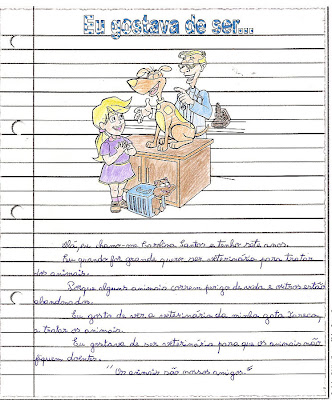 Eu gostava de ser...
Olá, eu chamo-me Carolina Santos e tenho sete anos.
Eu quando for grande quero ser veterinária para tratar
dos animais.
Porque alguns animais correm perigo de vida e outros estão
abandonados.
Eu gosto de ver a veterinária da minha gata Xaneca,
a tratar os animais.
Eu gostava de ser veterinária para que os animais não
fiquem doentes.
"Os animais são nossos amigos."